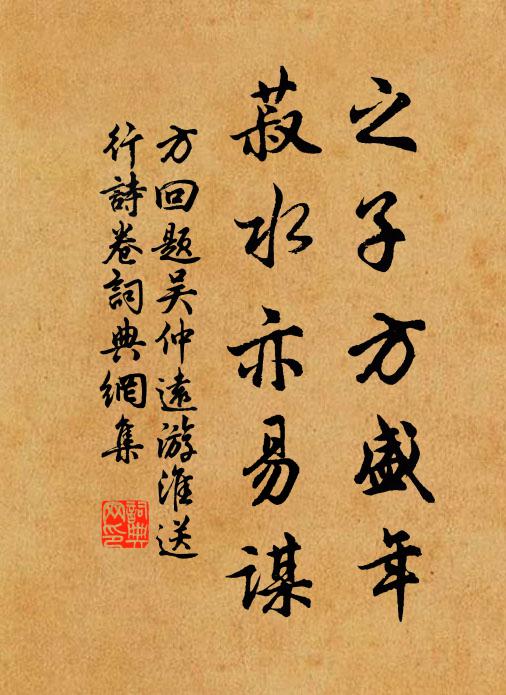 之子方盛年
菽水亦易謀
方回題吴仲遠游淮送
行詩卷詞典網集
詞典
网印